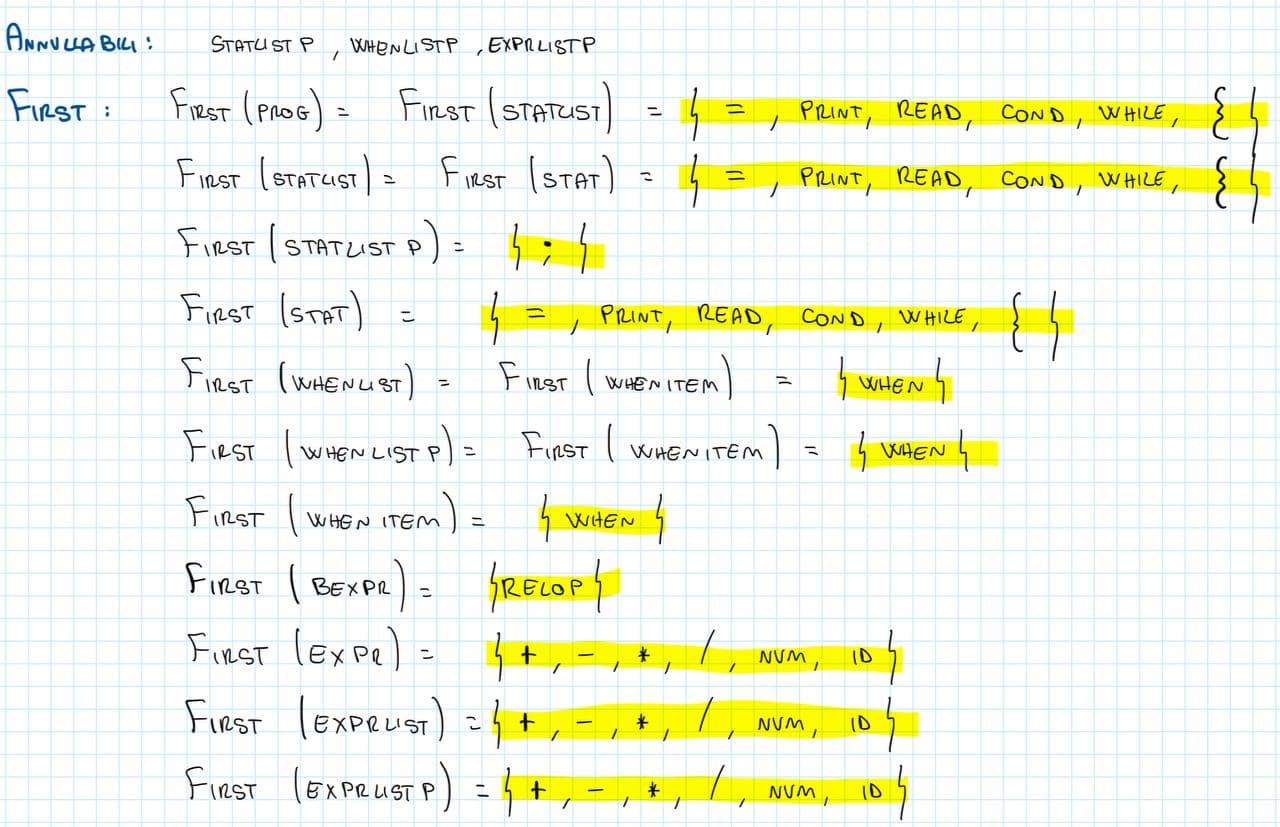 ANNULLABILI: STATLISTP, WHENLISTP, EXPRLISTP
FIRST: FIRST (PROG) = FIRST (STATLIST) = { =, PRINT, READ, COND, WHILE, { }
FIRST (STATLIST) = FIRST (STAT) = { =, PRINT, READ, COND, WHILE, { }
FIRST (STATLIST P) = { ; }
FIRST (STAT) = { =, PRINT, READ, COND, WHILE, { }
FIRST (WHENLIST) = FIRST (WHENITEM) = { WHEN }
FIRST (WHENLIST P) = FIRST (WHENITEM) = { WHEN }
FIRST (WHENITEM) = { WHEN }
FIRST (BEXPR) = { RELOP }
FIRST (EXPR) = { +, -, *, /, NUM, ID }
FIRST (EXPRLIST) = { +, -, *, /, NUM, ID }
FIRST (EXPRLIST P) = { +, -, *, /, NUM, ID }